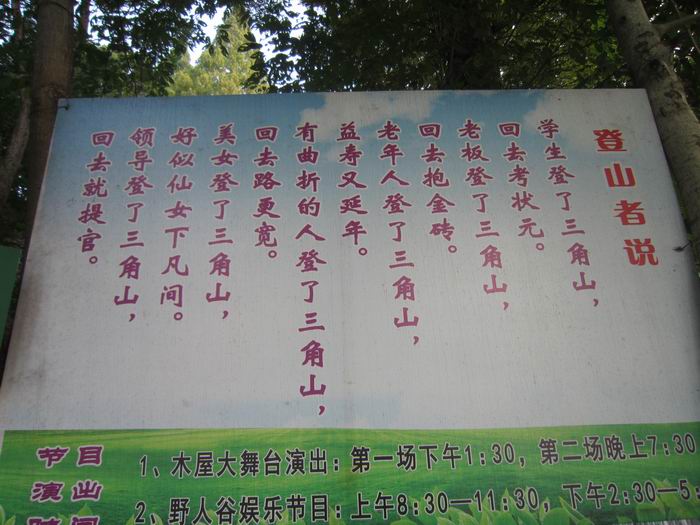 登山者说
学生登了三角山，
回去考状元。
老板登了三角山，
回去抱金砖。
老年人登了三角山，
益寿又延年。
有曲折的人登了三角山，
回去路更宽。
美女登了三角山，
好似仙女下凡间。
领导登了三角山，
回去就提官。
节目
演出
时间
1、木屋大舞台演出：第一场下午1:30，第二场晚上7:30
2、野人谷娱乐节目：上午8:30—11:30，下午2:30—5: